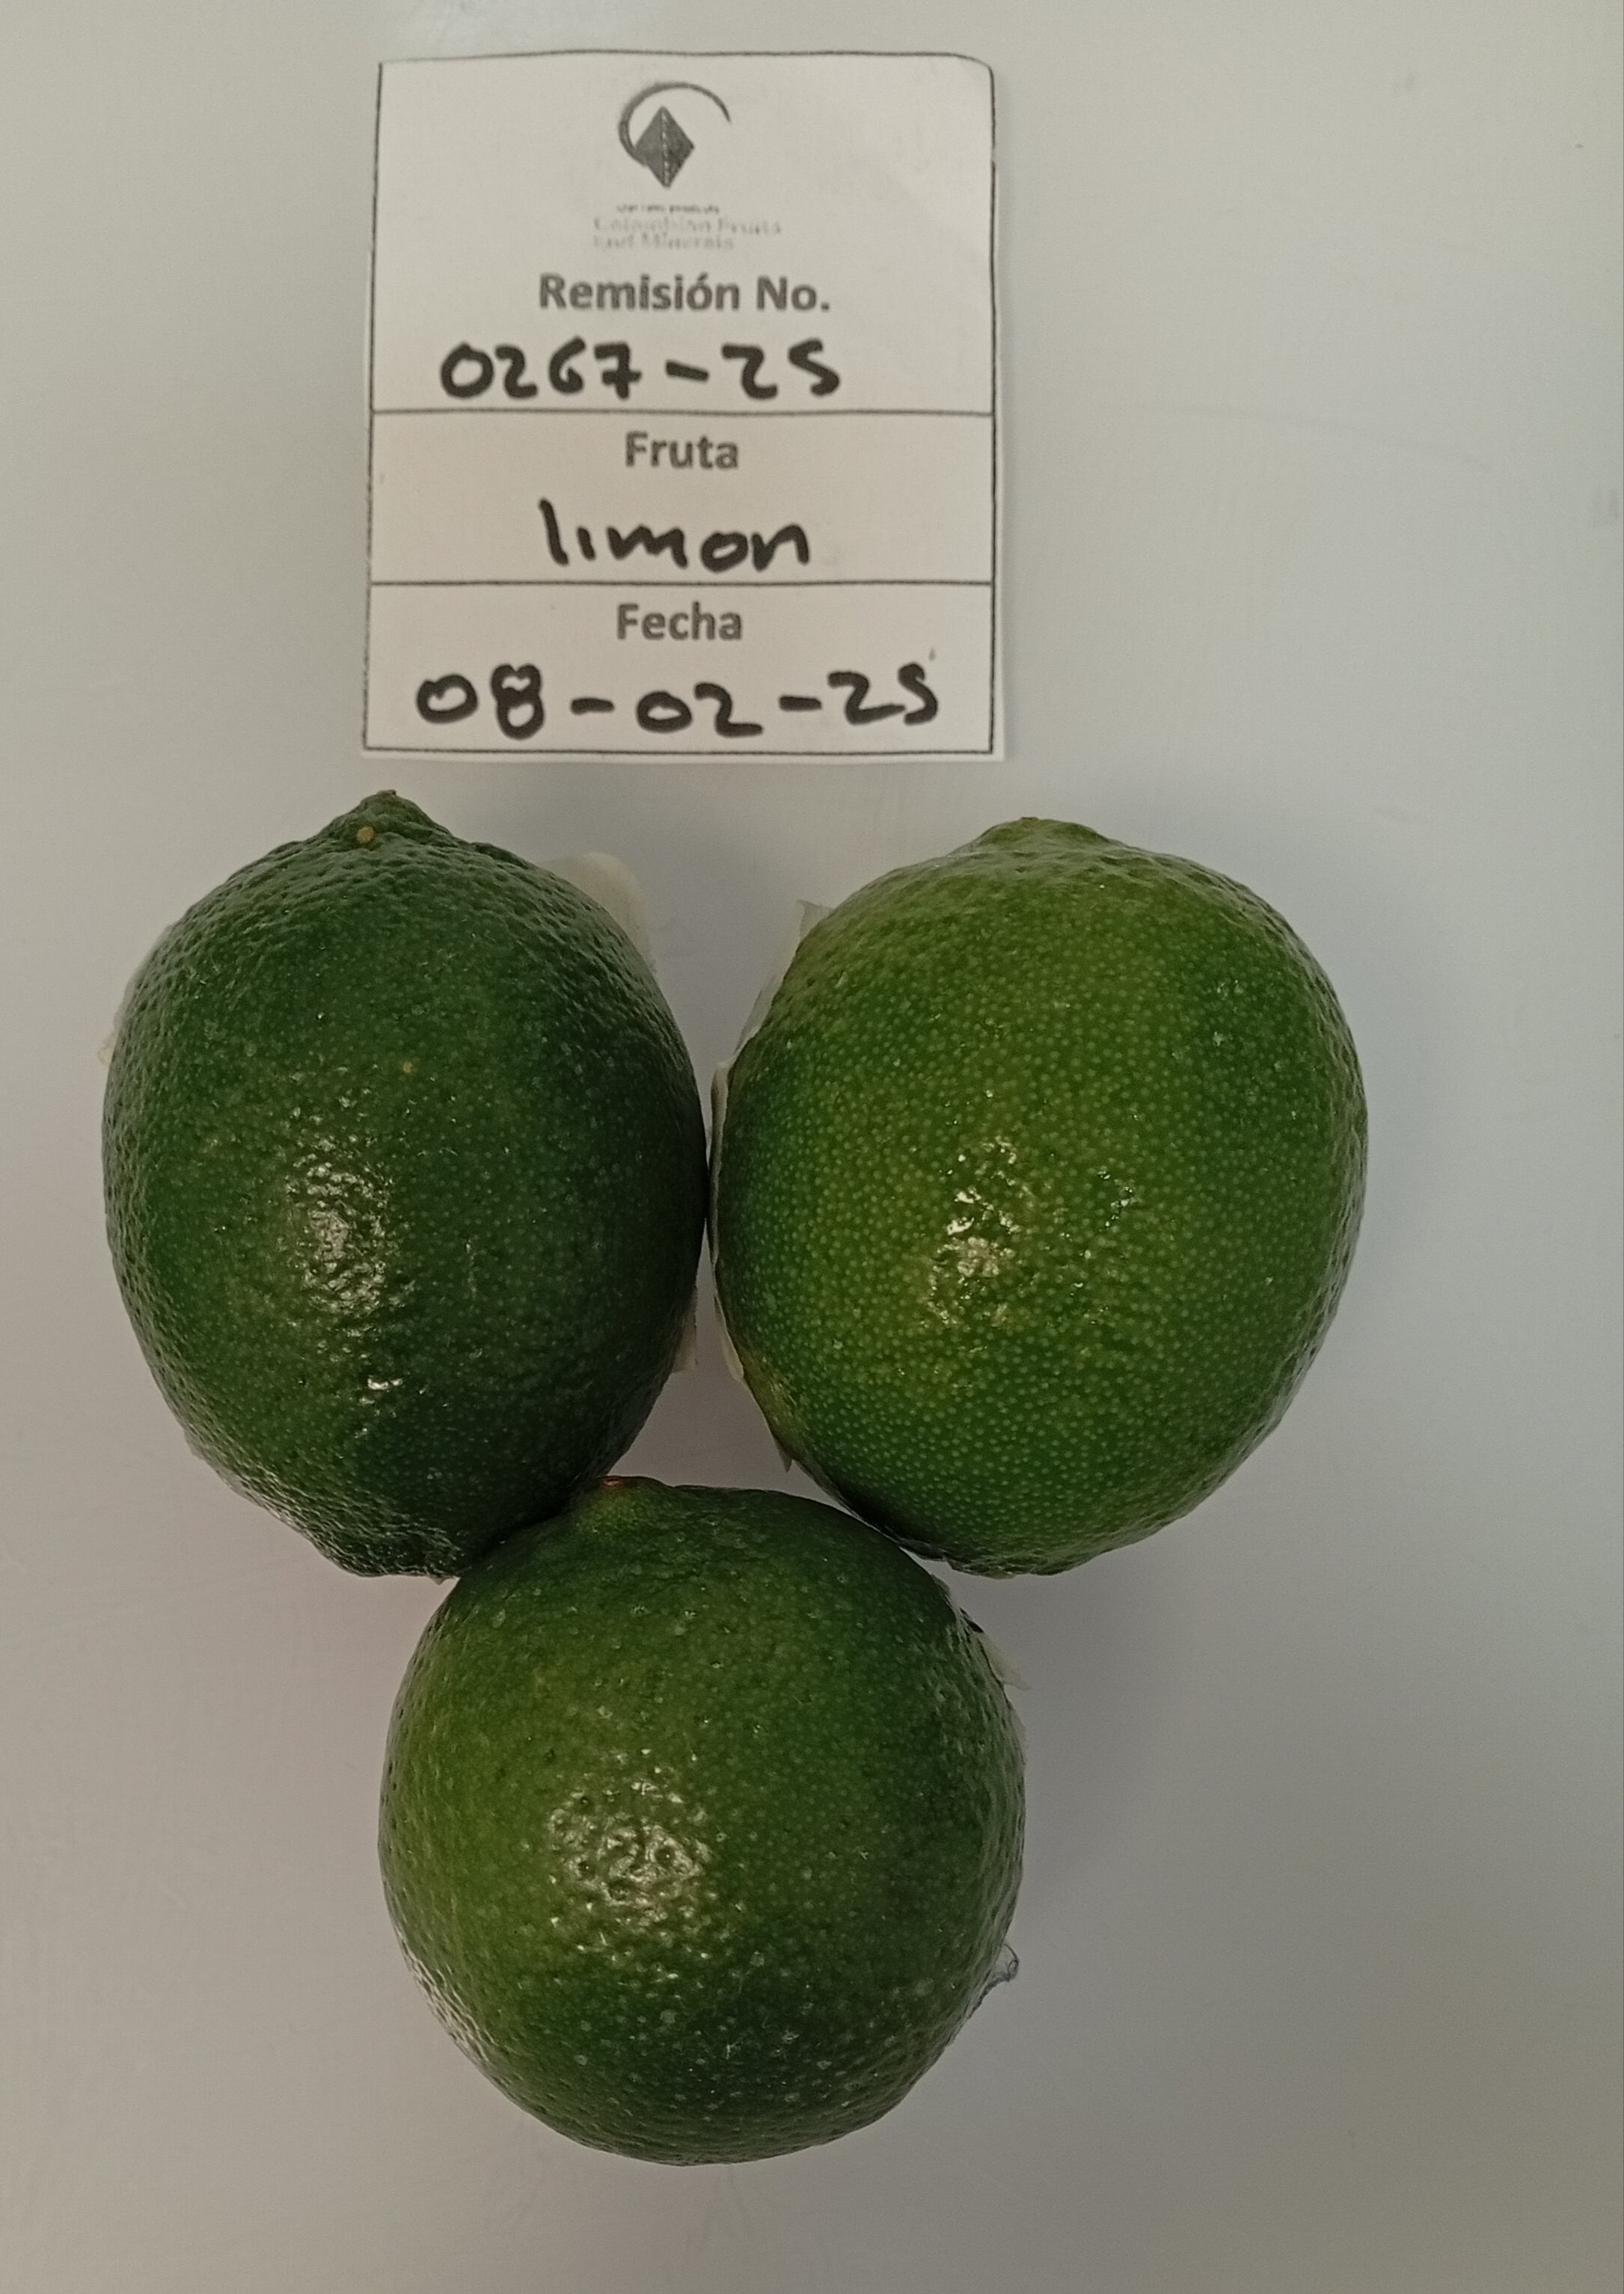 Colombian Fruits
and Minerals
Remisión No.
0267-25
Fruta
limon
Fecha
08-02-25